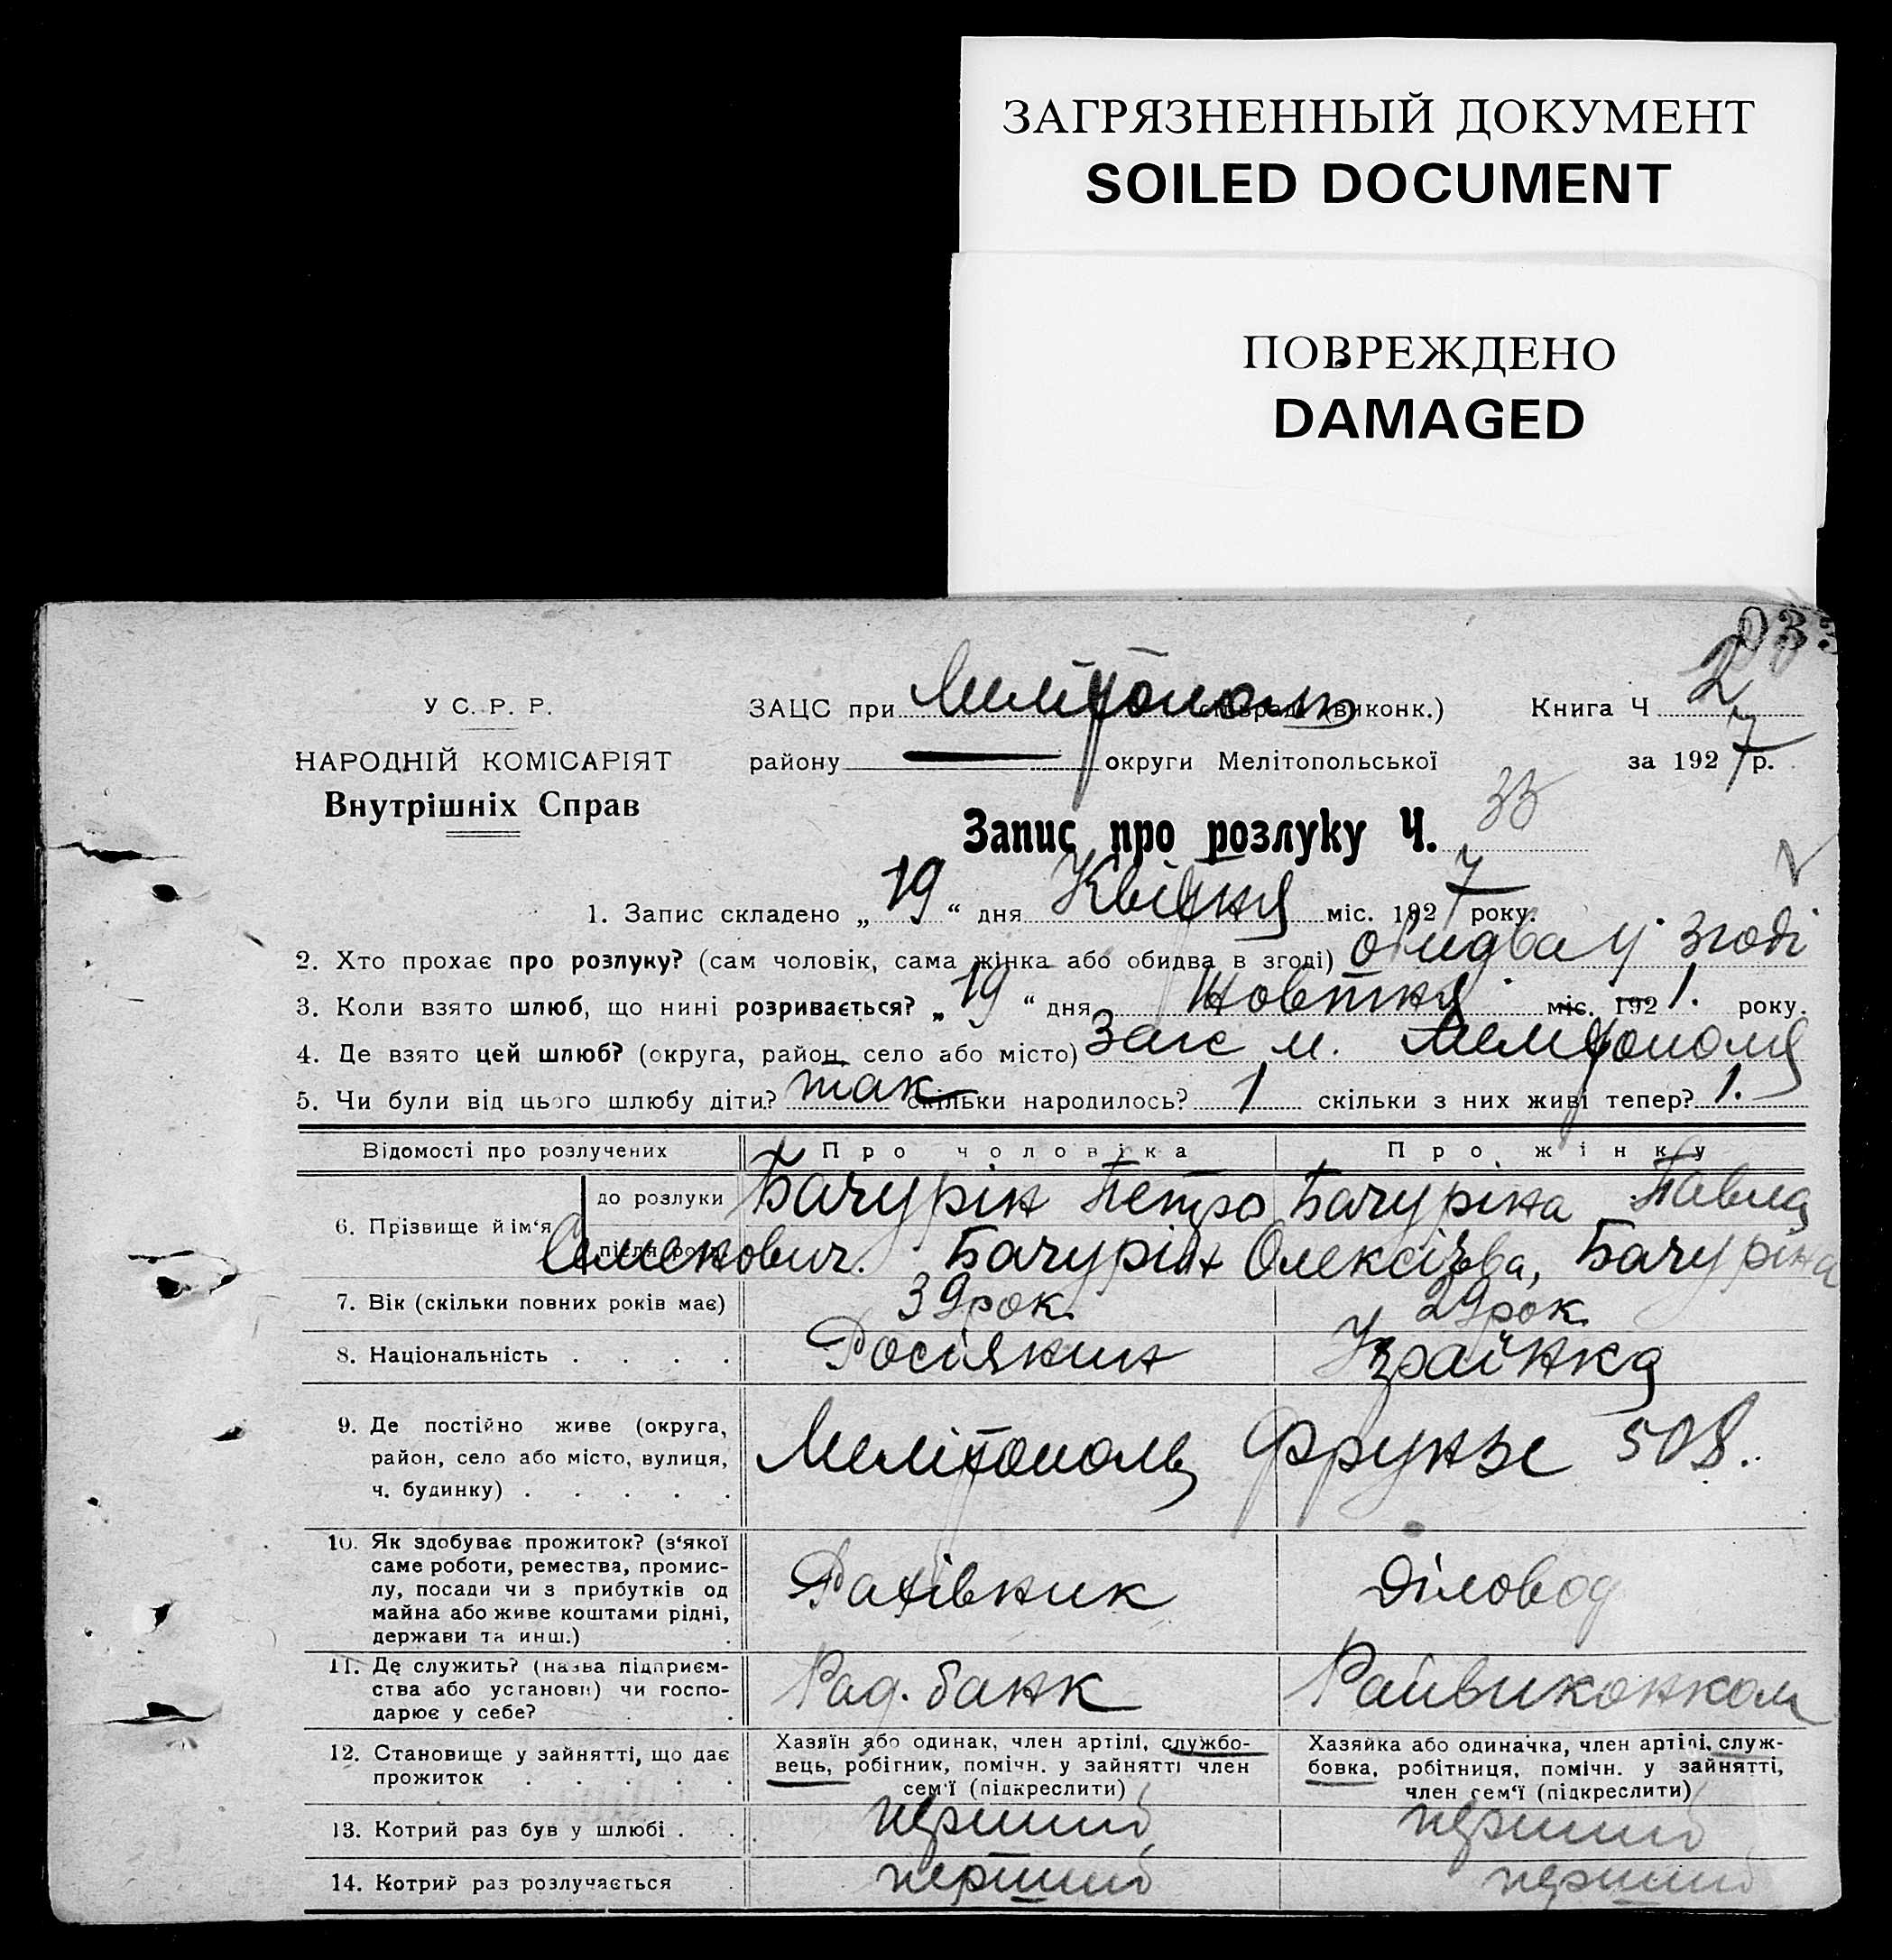 ЗАГРЯЗНЕННЫЙ ДОКУМЕНТ
SOILED DOCUMENT
ПОВРЕЖДЕНО
DAMAGED
033
У С. Р. Р.
НАРОДНІЙ КОМІСАРІЯТ
Внутрішніх Справ
ЗАЦС при Мелітополь (виконк.) Книга Ч 2
району — округи Мелітопольської за 1927 р.
Запис про розлуку Ч. 33
1. Запис складено „19“ дня Квітня міс. 1927 року.
2. Хто прохає про розлуку? (сам чоловік, сама жінка або обидва в згоді) обидва у згоді
3. Коли взято шлюб, що нині розривається? „19“ дня Жовтня міс. 1921. року.
4. Де взято цей шлюб? (округа, район, село або місто) Загс м. Мелітополя
5. Чи були від цього шлюбу діти? так скільки народилось? 1 скільки з них живі тепер? 1.
Відомості про розлучених Про чоловіка Про жінку
6. Прізвище й ім‘я до розлуки Бачурін Петро Бачуріна Павла
після розл. Семенович. Бачурін Олексієва, Бачуріна
7. Вік (скільки повних років має) 39 рок. 29 рок.
8. Національність . . . . Росіянин Українка
9. Де постійно живе (округа,
район, село або місто, вулиця,
ч. будинку) . . . . . Мелітополь Фрунзе 508.
10. Як здобуває прожиток? (з‘якої
саме роботи, ремества, промис-
лу, посади чи з прибутків од
майна або живе коштами рідні,
держави та инш.) . Рахівник Діловод
11. Де служить? (назва підприєм-
ства або установи) чи госпо-
дарює у себе? . . Рад. банк Райвиконком
12. Становище у зайнятті, що дає
прожиток . . . . .
Хазяїн або одинак, член артілі, службо-
вець, робітник, помічн. у зайнятті член
сем‘ї (підкреслити)
Хазяйка або одиначка, член артілі, служ-
бовка, робітниця, помічн. у зайнятті,
член сем‘ї (підкреслити)
13. Котрий раз був у шлюбі . . . перший перший
14. Котрий раз розлучається . перший перший